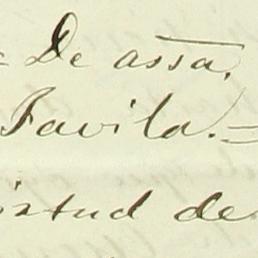 = De assa.
Favila. =
istud de